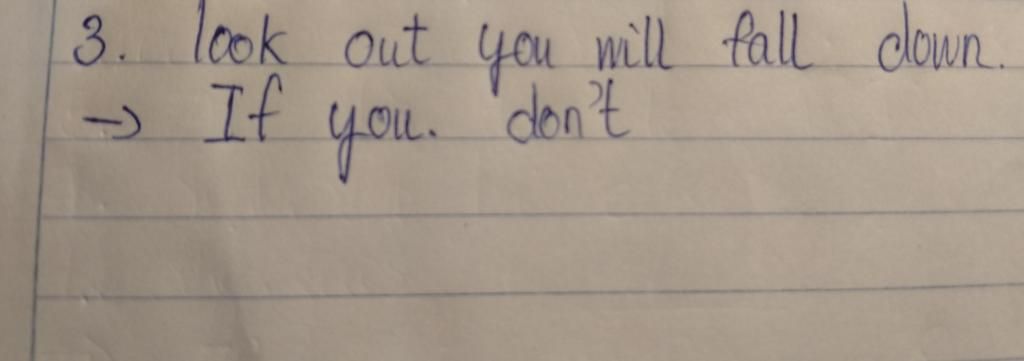 3. look out you will fall down.
→ If you. don't